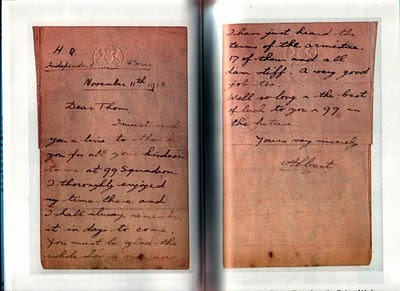 H.Q.
Independent Force
November 11th 1918
Dear Thom,
I must send
you a line to thank
you for all your kindness
to me at 99 Squadron
I thoroughly enjoyed
my time there and
I shall always remember
it in days to come.
You must be glad the
whole show is over now
I have just heard the
terms of the armistice.
17 of them and all
dam stiff. A very good
job too.
Well so long & the best
of luck to you & 99 in
the future
Yours very sincerely
Albert